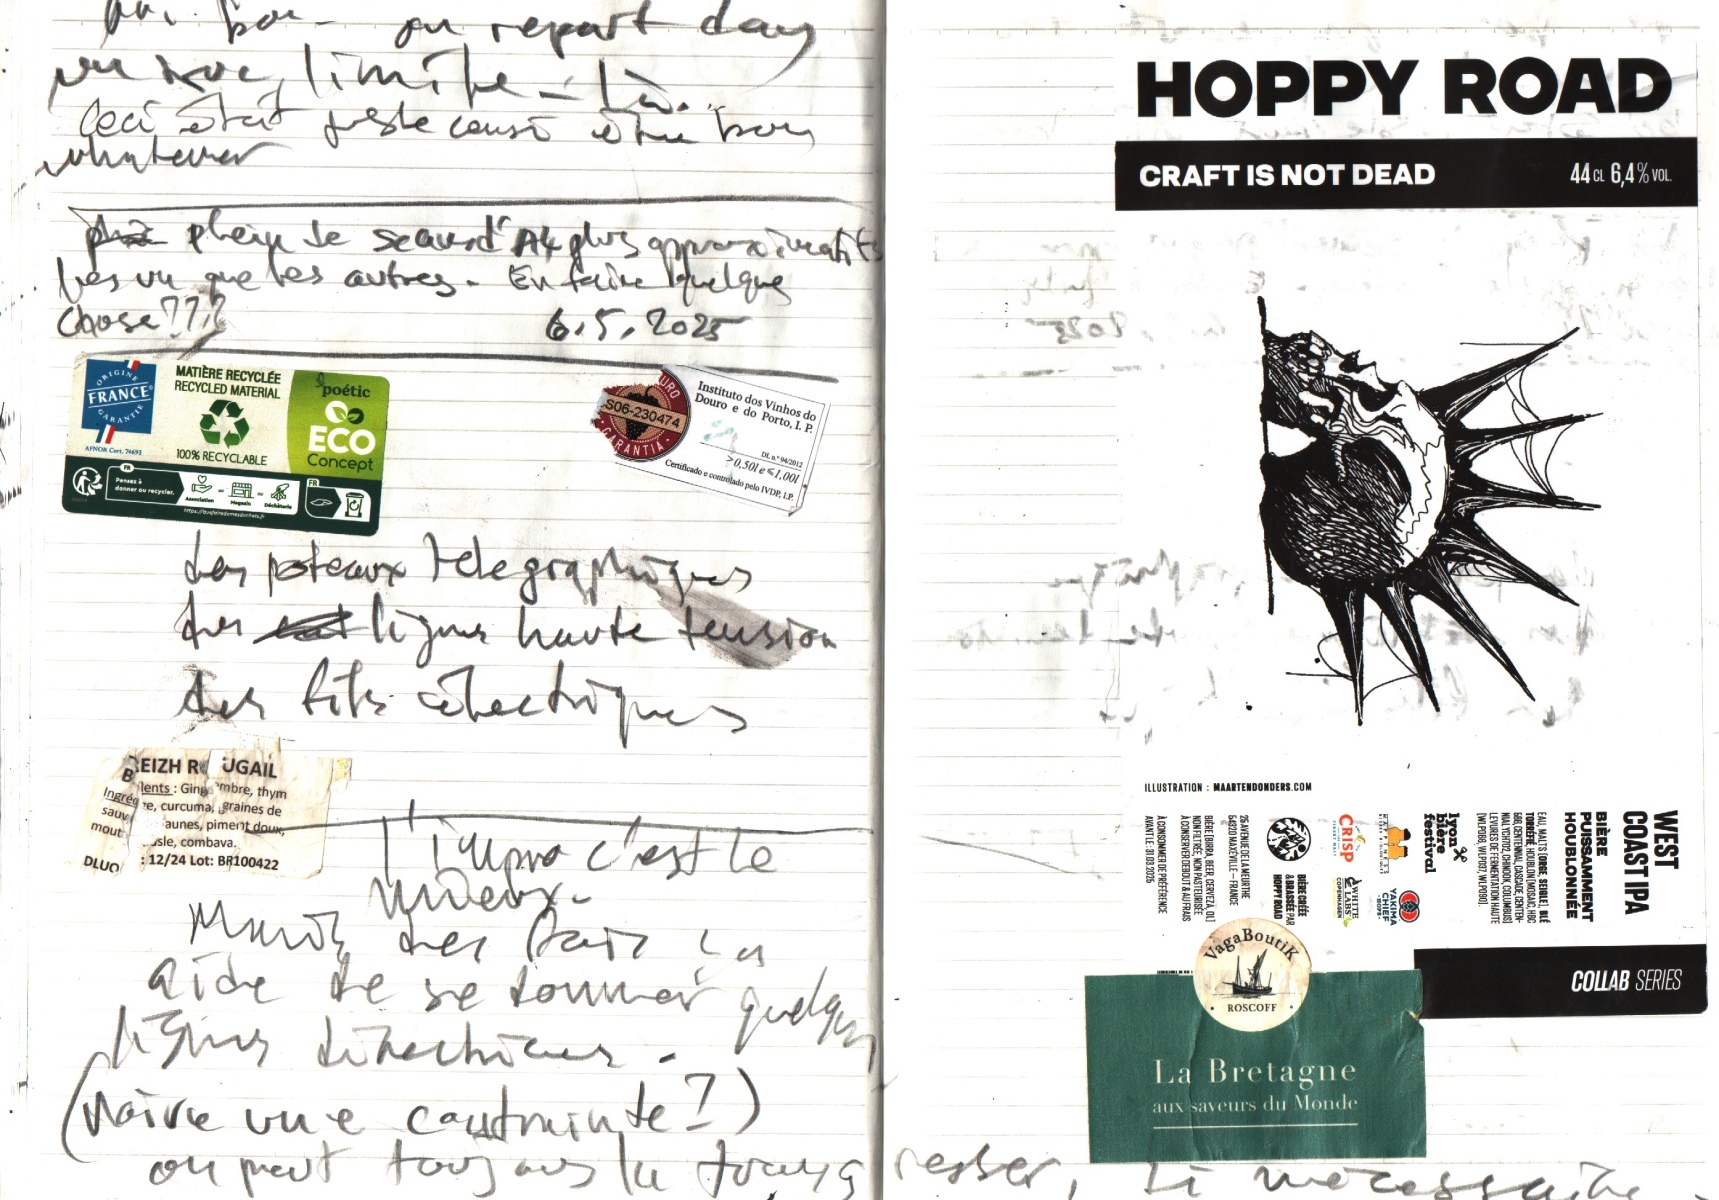 on repart dans
un truc limite - là.
Ceci était juste censé être bon
whatever
plein de scans d'A4 plus approximatifs
les uns que les autres. En faire quelque
chose???
6.5.2025
ORIGINE
FRANCE
GARANTIE
AFNOR Cert. 74693
MATIÈRE RECYCLÉE
RECYCLED MATERIAL
100% RECYCLABLE
poétic
ECO
Concept
FR
Pensez à
donner ou recycler.
Association
ou
Magasin
ou
Déchèterie
FR
https://quefairedemesdechets.fr
URO
S06-23047 4
GARANTIA
Instituto dos Vinhos do
Douro e do Porto, I. P.
DL n.º 94/2012
>0,50l e ≤1,00l
Certificado e controlado pelo IVDP, I.P.
des poteaux télégraphiques
des lignes haute tension
des fils électriques
BREIZH R UGAIL
Ingré lents : Ging mbre, thym
sauv ge, curcuma, graines de
mout aunes, piment doux,
sle, combava.
DLUO : 12/24 Lot: BR100422
L'impro c'est le
mieux.
Mais des fois ça
aide de se donner quelques
lignes directrices.
(voire une contrainte?)
on peut toujours la transgresser, si nécessaire.
HOPPY ROAD
CRAFT IS NOT DEAD
44 CL 6,4% VOL.
ILLUSTRATION : MAARTENDONDERS.COM
WEST
COAST IPA
BIÈRE
PUISSAMMENT
HOUBLONNÉE
EAU, MALTS (ORGE, SEIGLE), BLÉ
TORRÉFIÉ, HOUBLON (MOSAIC, HBC
586, CENTENNIAL, CASCADE, CENTEN-
NIAL YCH702, CHINOOK, COLUMBUS)
LEVURES DE FERMENTATION HAUTE
lyon
bière
festival
YAKIMA
CHIEF
HOPS
CRISP
WHITE
LABS
COPENHAGEN
BIÈRE CRÉÉE
& BRASSÉE PAR
HOPPY ROAD
25 AVENUE DE LA MEURTHE
54320 MAXÉVILLE – FRANCE
BIÈRE (BIRRA, BEER, CERVEZA, ØL)
NON FILTRÉE, NON PASTEURISÉE
À CONSERVER DEBOUT & AU FRAIS
À CONSOMMER DE PRÉFÉRENCE
AVANT LE : 31 03 2025
COLLAB SERIES
VagaBoutiK
ROSCOFF
La Bretagne
aux saveurs du Monde